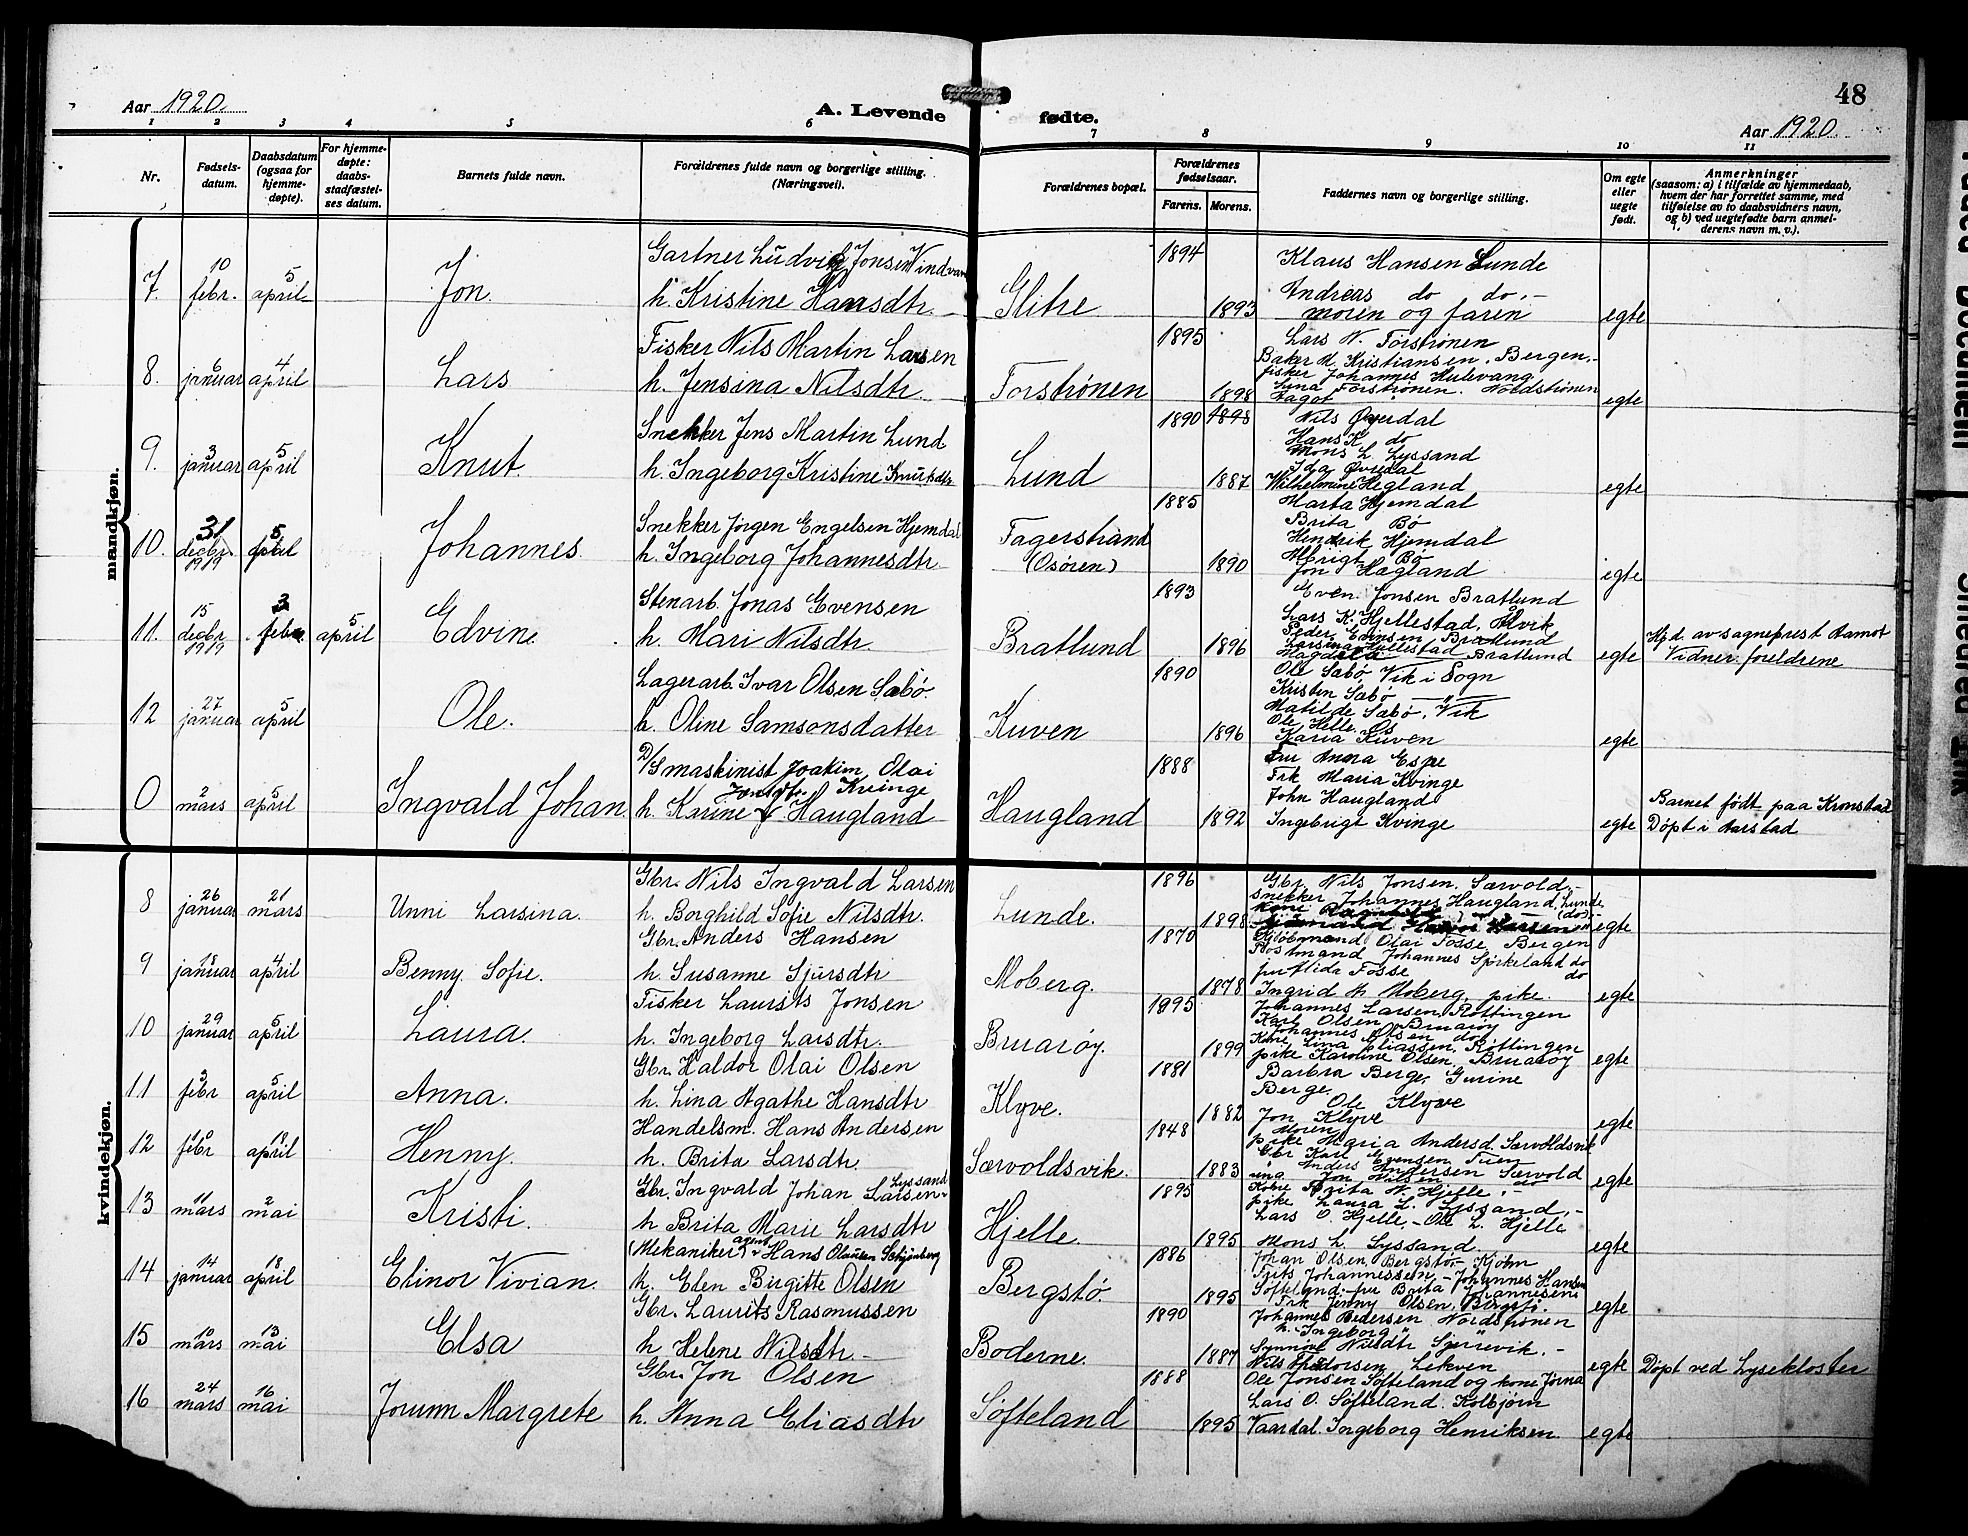 48
Aar 1920.
A. Levende fødte.
Aar 1920.
1 2 3 4 5 6 7 8 9 10 11
Nr.
Fødsels-
datum.
Daabsdatum
(ogsaa for
hjemme-
døpte).
For hjemme-
døpte:
daabs-
stadfæstel-
ses datum.
Barnets fulde navn.
Forældrenes fulde navn og borgerlige stilling.
(Næringsvei).
Forældrenes bopæl.
Forældrenes
fødselsaar.
Farens. Morens.
Faddernes navn og borgerlige stilling.
Om egte
eller
uegte
født.
Anmerkninger
(saasom: a) i tilfælde av hjemmedaab,
hvem der har forrettet samme, med
tilføielse av to daabsvidners navn,
og b) ved uegtefødte barn anmel-
derens navn m. v.).
mandkjøn.
7. 10 febr. 5 april Jon.
Gartner Ludvig Jonsen
h. Kristine Hansdtr.
Glitre 1894 1893
Klaus Hansen Lunde
Andreas do do.-
moren og faren
egte
8. 6 januar 4 april Lars
Fisker Nils Martin Larsen
h. Jensina Nilsdtr.
Forstrønen 1895 1898
Lars N. Forstrønen
Baker M. Kristiansen. Bergen.-
fisker Johannes Hulevang
Forstrønen. Nordstrønen
egte
9. 3 januar 5 april Knut
Snekker Jens Martin Lund
h. Ingeborg Kristine Knutsdtr.
Lund 1890 1898 1887
Nils Øvredal
Hans K. do
Mons L. Lyssand
Ida Øvredal
Wilhelmine Hegland
egte
10. 31 decbr. 1919 5 april Johannes
Snekker Jørgen Engelsen Hjemdal
h. Ingeborg Johannesdtr.
Fagerstrand
(Osøren) 1885 1890
Marta Hjemdal
Brita Bø
Hendrik Hjemdal
Bø
Jon Hægland
egte
11. 15 decbr 1919 3 febr. 5 april Edvine
Stenarb. Jonas Evensen
h. Mari Nilsdtr.
Bratlund 1893 1896
Even Jonsen Bratlund
Lars K. Hjellestad, Alvik
Peder Evensen Bratlund
Hjellestad
Magdela Bratlund
egte
Hjd. av sogneprest Aamot
Vidner: foreldrene
12 27 januar 5 april Ole.
Lagerarb. Ivar Olsen Sæbø
h. Oline Samsonsdatter
Kuven 1890 1896
Ole Sæbø Vik i Sogn
Kristen Sæbø —"—
Matilde Sæbø, Vik
Ole Helle Os
Karia Kuven
egte
0 2 mars 5 april Ingvald Johan
D/Smaskinist Joakim Olai
Kvinge
h. Karine Jonsdtr. Haugland
Haugland 1888 1892
Fru Anna Espe
Frk Maria Kvinge
John Haugland
Ingebrigt Kvinge
egte
Barnet født paa Kronstad
Døpt i Aarstad
kvindekjøn.
8 26 januar 21 mars Unni Larsina.
Gbr. Nils Ingvald Larsen
h. Borghild Sofie Nilsdtr.
Lunde. 1896 1898
Gbr Nils Jonsen Særvold.-
snekker Johannes Haugland, Lunde
kone Ragnhilde (do).-
egte
9 18 januar 4 april Benny Sofie.
Gbr. Anders Hansen
h. Susanne Sjursdtr
Moberg. 1870 1878
Kjøbmand Olai Fosse Bergen
Postmand Johannes Spirkeland do
Fosse do
Ingrid M Moberg, pike.
egte
10 29 januar 5 april Laura.
Fisker Laurits Jonsen
h. Ingeborg Larsdtr.
Bruarøy. 1895 1899
Johannes Larsen Røttingen
Karl Olsen Bruarøy
Johannes Olsen do
Kone Lina Eliassen, Røttingen
pike Karoline Olsen, Bruarøy
egte
11 3 febr 5 april Anna.
Gbr. Haldor Olai Olsen
h. Lina Agathe Hansdtr
Klyve. 1881 1882
Barbra Berge, Gurine
Berge.
Ole Klyve
Jon Klyve
Moren
egte
12 10 febr 18 april Henny.
Handelsm. Hans Andersen
h. Brita Larsdtr.
Særvoldsvik. 1848 1883
pike Maria Andersd. Særvoldsvik
Gbr Karl Evensen Tuen
Anders Andersen Særvold
Jon Nilsen do
egte
13 11 mars 2 mai Kristi.
Gbr. Ingvald Johan Larsen Lyssand
h Brita Marie Larsdtr
Hjelle. 1895 1895
Kone Brita N. Hjelle.-
pike Laura L. Lyssand,-
Lars O. Hjelle,- Ole L. Hjelle
Mons L. Lyssand.
egte
14 14 januar 18 april Elinor Vivian.
(Mekaniker) agent Hans Olausen
h. Elen Birgitte Olsen
Bergstø. 1886 1895
Johan Olsen, Bergstø.- Kjohn
Frits Johannessen,- Johannes Hansen
Søfteland,- fru Brita Johannesen
Frk Jenny Olsen, Bergstø.
egte
15 10 mars 13 mai Elsa
Gbr. Laurits Rasmussen
h Helene Nilsdtr.-
Boderne. 1890 1887
Johannes Pedersen Nordstrønen
h. Ingeborg "
Synnøve Nilsdtr Gjerrevik.-
Nils Lekven
egte
Døpt ved Lysekloster
16 24 mars 16 mai Jorunn Margrete
Gbr. Jon Olsen
h. Anna Eliasdtr
Søfteland 1888 1895
Ole Jonsen Søfteland og kone Jorina
Lars O. Søfteland. Kolbjørn
Vaardal. Ingeborg Henriksen.
egte